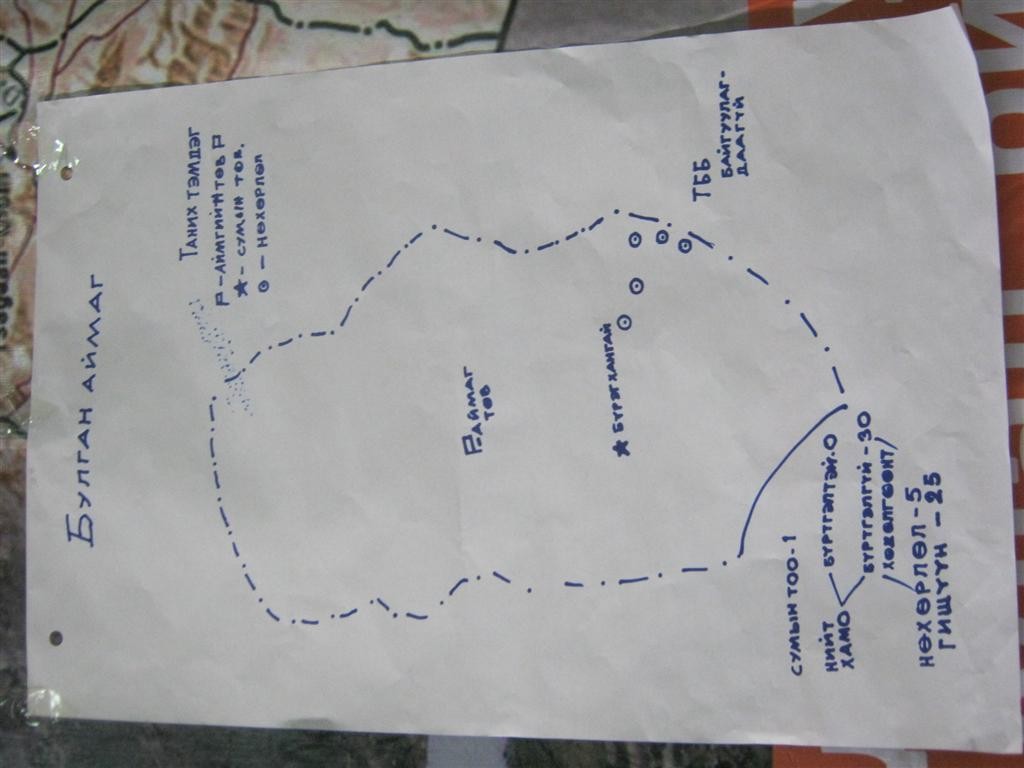 БУЛГАН АЙМАГ
ТАНИХ ТЭМДЭГ
Р-АЙМГИЙН ТӨВ Р
★-СУМЫН ТӨВ.
⊙-НӨХӨРЛӨЛ
Р АЙМАГ
ТӨВ
★ БҮРЭГХАНГАЙ
ТББ
БАЙГУУЛАГ-
ДААГҮЙ
СУМЫН ТОО-1
НИЙТ
ХАМО
БҮРТГЭЛТЭЙ-0
БҮРТГЭЛГҮЙ-30
/ХӨДӨЛГӨӨНТ/
НӨХӨРЛӨЛ-5
ГИШҮҮН-25